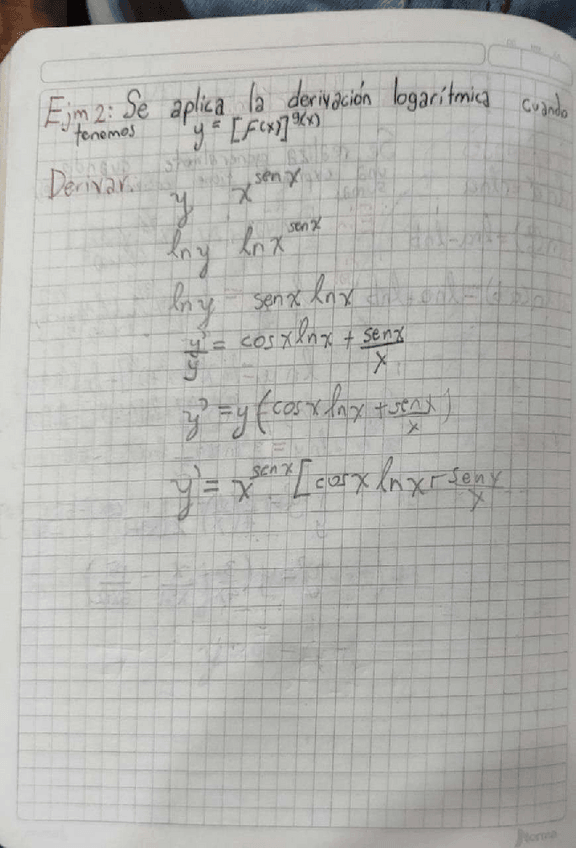 Ejm 2: Se aplica la derivación logarítmica cuando
tenemos y = [F(x)]^g(x)
Derivar.
y x^senx
lny lnx^senx
lny senx lnx
y'/y = cosxlnx + senx/x
y' = y(cosx lnx + senx/x)
y' = x^senx [cosx lnx + senx/x
norma